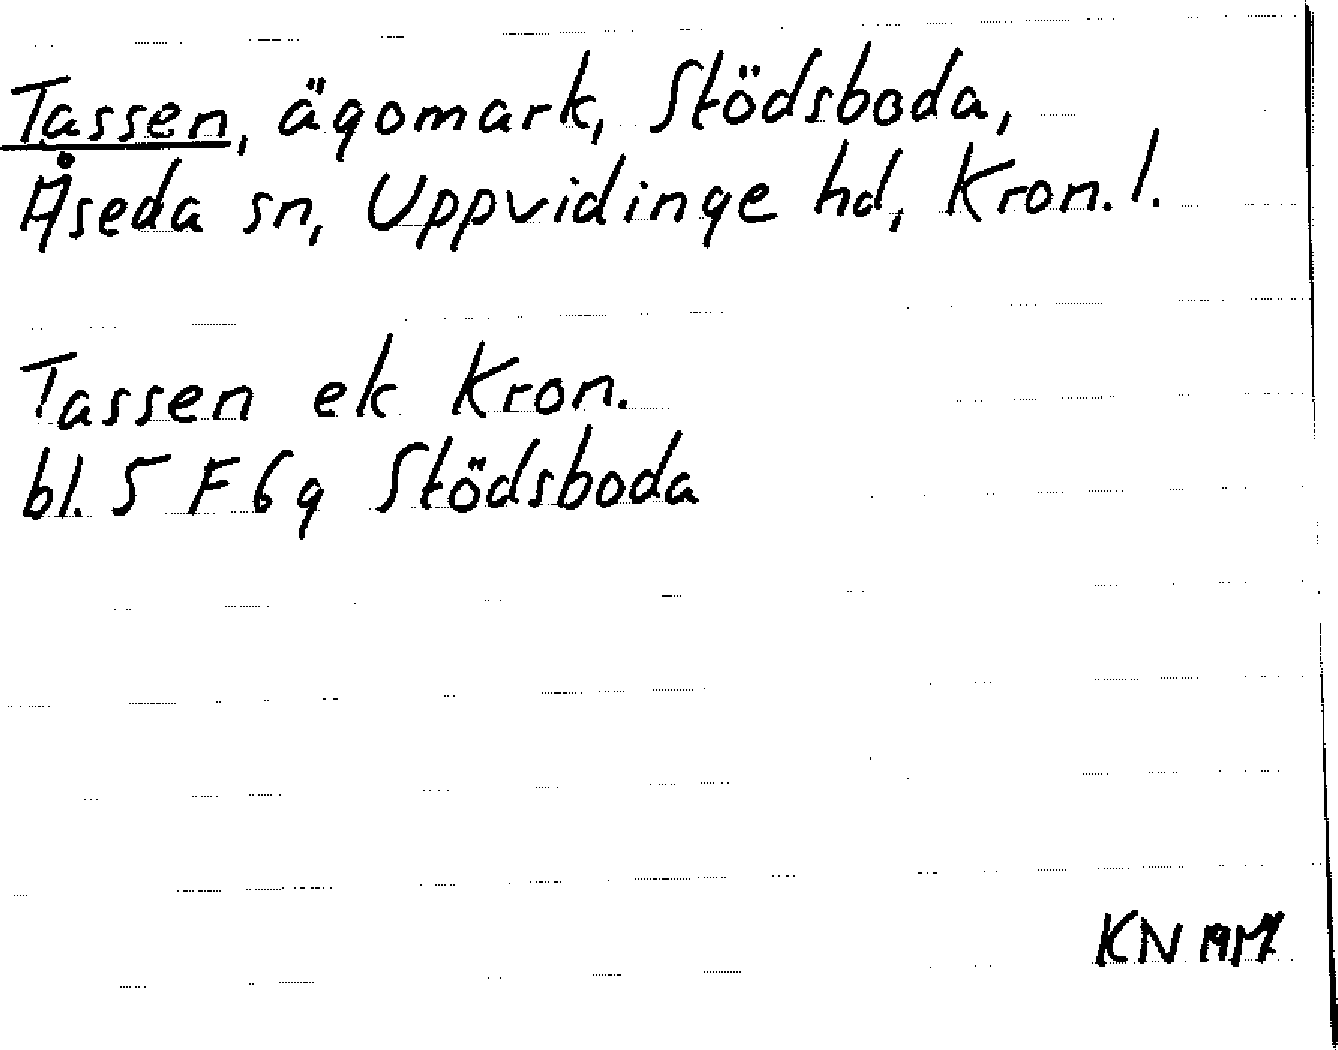 Tassen, ägomark, Stödsboda,
Åseda sn, Uppvidinge hd, Kron. l.
Tassen ek Kron.
bl. 5 F 6g Stödsboda
KN